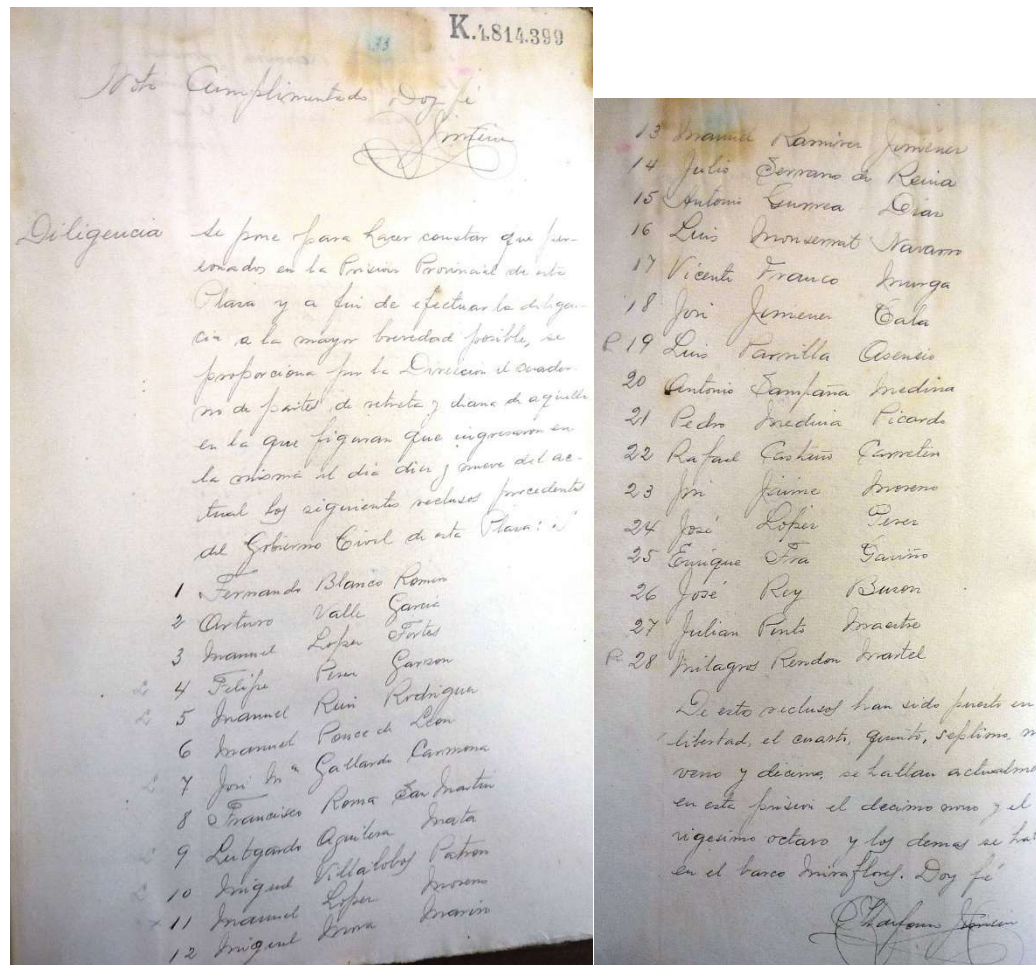 33
K.4.814.399
Nota Cumplimentado Doy fé
Diligencia Se pone para hacer constar que per-
sonados en la Prision Provincial de esta
Plaza y a fin de efectuar la diligen-
cia a la mayor brevedad posible, se
proporciona por la Direccion el cuader-
no de partes de retreta y diana de aquella
en la que figuran que ingresaron en
la misma el dia diez y nueve del ac-
tual los siguientes reclusos procedentes
del Gobierno Civil de esta Plaza:
1 Fernando Blanco Romin
2 Arturo Valle Garcia
3 Manuel Lopez Fortes
L 4 Felipe Perez Garzon
L 5 Manuel Ruiz Rodriguez
6 Manuel Ponce de Leon
L 7 José Mª Gallardo Carmona
8 Francisco Roma San Martin
L 9 Lutgardo Aguilera Mata
L 10 Miguel Villalobos Patron
11 Manuel Lopez Moreno
12 Miguel Mora Marin
13 Manuel Ramirez Jimenez
14 Julio Serrano de Reina
15 Antonio Gurrea Diaz
16 Luis Monserrat Navarro
17 Vicente Franco Murga
18 José Jimenez Cala
P 19 Luis Parrilla Asensio
20 Antonio Sampaña Medina
21 Pedro Medina Picardo
22 Rafael Castiño Carretin
23 José Jaime Moreno
24 José Lopez Perez
25 Enrique Fra Gariño
26 José Rey Buzon
27 Julian Pinto Maestre
P 28 Milagros Rendon Martel
De esto reclusos han sido puesto en
libertad, el cuarto, quinto, septimo, n
veno y decimo, se hallan actualme
en esta prision el decimo nono y el
vigesimo octavo y los demas se ha
en el barco Miraflores. Doy fé